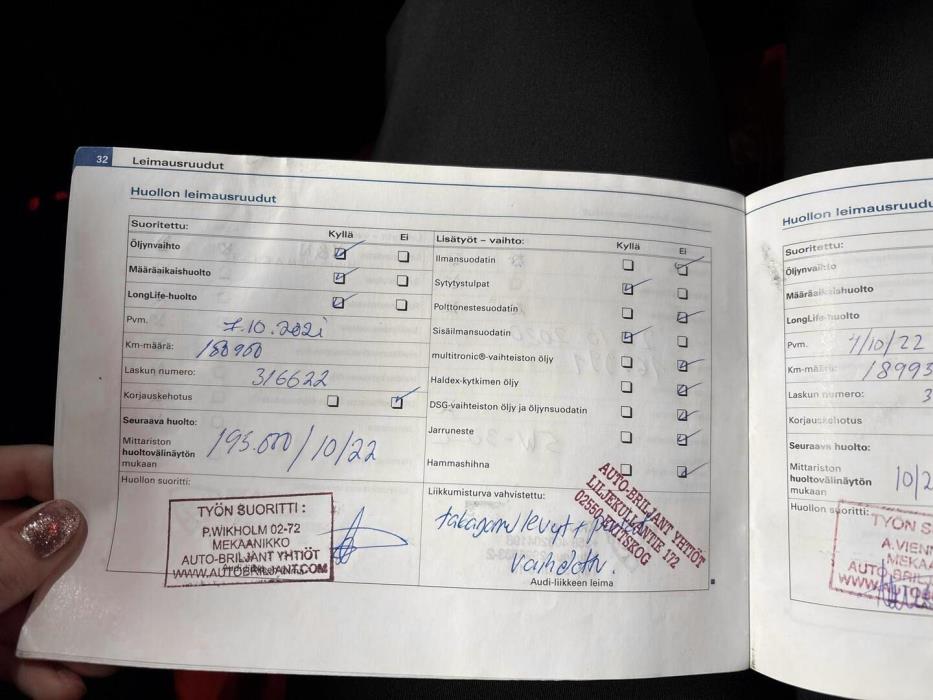 32 Leimausruudut
Huollon leimausruudut
Suoritettu: Kyllä Ei
Öljynvaihto
Määräaikaishuolto
LongLife-huolto
Pvm. 7.10.2021
Km-määrä: 180900
Laskun numero: 316622
Korjauskehotus
Seuraava huolto:
Mittariston
huoltovälinäytön
mukaan
195.000/10/22
Huollon suoritti:
TYÖN SUORITTI :
P.WIKHOLM 02-72
MEKAANIKKO
AUTO-BRILJANT YHTIÖT
WWW.AUTOBRILJANT.COM
Lisätyöt – vaihto: Kyllä Ei
Ilmansuodatin
Sytytystulpat
Polttonestesuodatin
Sisäilmansuodatin
multitronic®-vaihteiston öljy
Haldex-kytkimen öljy
DSG-vaihteiston öljy ja öljynsuodatin
Jarruneste
Hammashihna
Liikkumisturva vahvistettu:
AUTO-BRILJANT YHTIÖT
LILJEKULLANTIE 172
02550 EVITSKOG
levyt +
vaihdettu.
Audi-liikkeen leima
Huollon leimausruudu
Suoritettu:
Öljynvaihto
Määräaikaishuolto
LongLife-huolto
Pvm. 4/10/22
Km-määrä: 18993
Laskun numero: 3
Korjauskehotus
Seuraava huolto:
Mittariston
huoltovälinäytön
mukaan
10/2
Huollon suoritti:
TYÖN S
A.VIEN
MEKA
AUTO-BRIL
WWW.